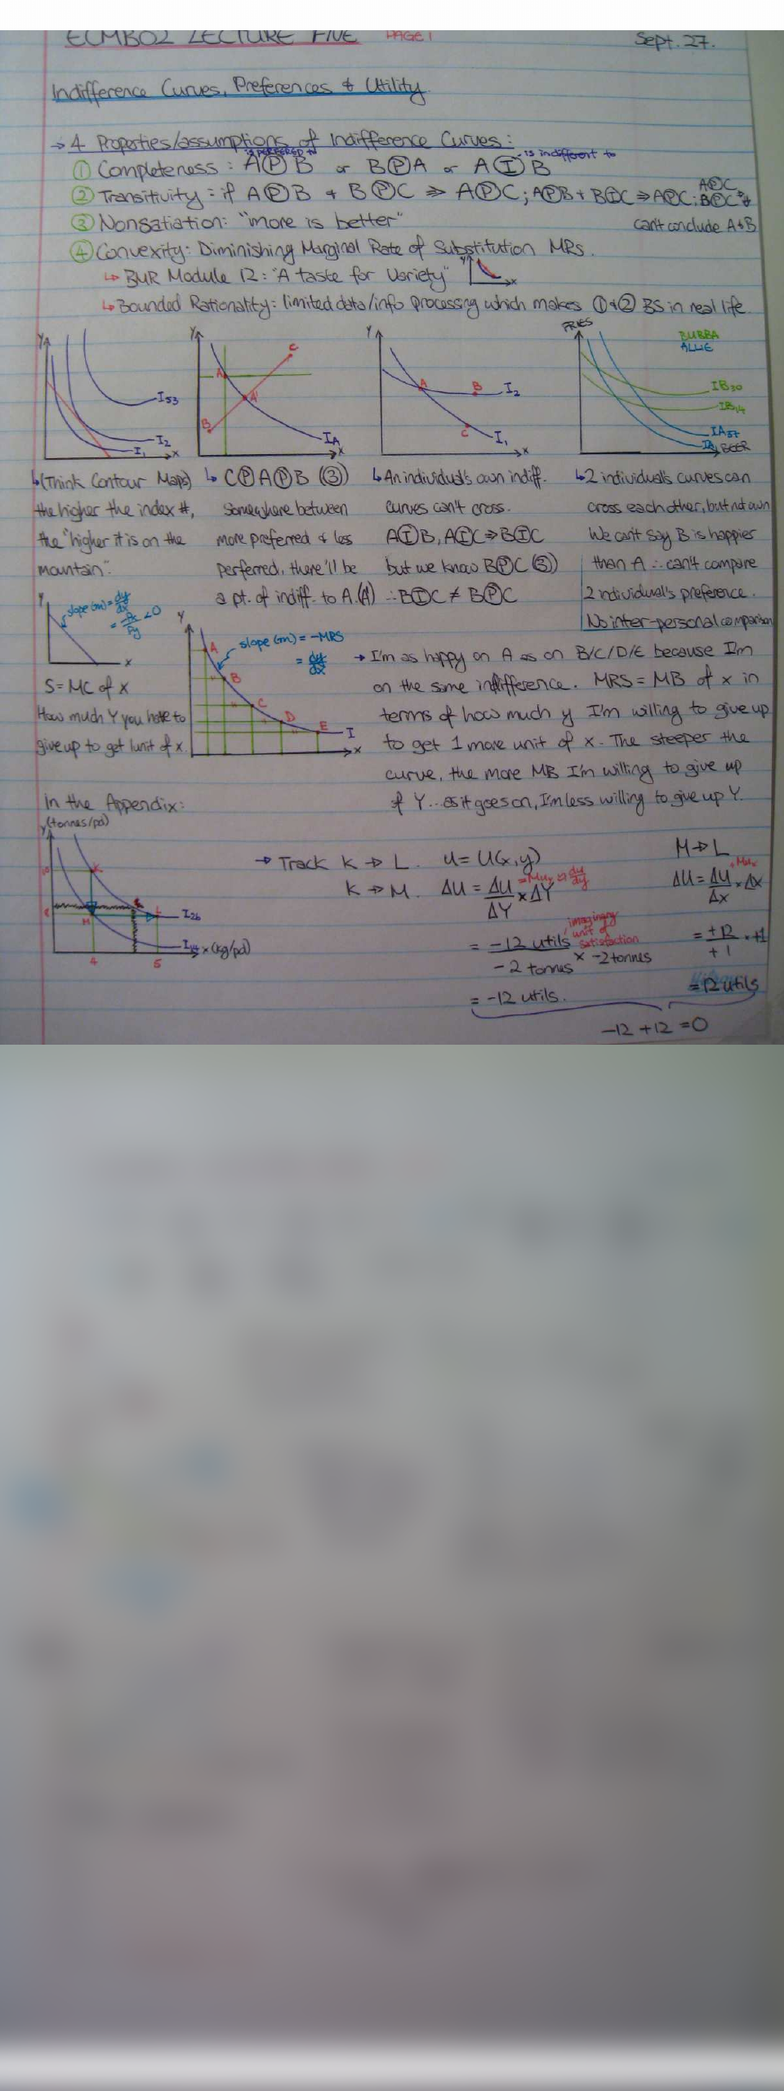 ECMB02 LECTURE FIVE PAGE 1 Sept. 27.
Indifference Curves, Preferences & Utility
→ 4 Properties/assumptions of Indifference Curves:
is preferred to is indifferent to
① Completeness: AⓅB or BⓅA or AⒾB
② Transitivity: if AⓅB & BⓅC ⇒ AⓅC; AⓅB + BⒾC ⇒ AⓅC;
can't conclude A&B
③ Nonsatiation: "more is better"
④ Convexity: Diminishing Marginal Rate of Substitution MRS.
↳ BUR Module 12: "A taste for Variety"
↳ Bounded Rationality: limited data/info processing which makes ①&② BS in real life.
Y I53 I2 I1 x
Y A A' B C IA x
Y A B C I2 I1 x
FRIES BUBBA ALLIE BEER
↳(Think Contour Maps)
the higher the index #,
the "higher it is on the
mountain".
↳ CⓅAⓅB (③)
Somewhere between
more preferred & less
perferred, there'll be
a pt. of indiff. to A. (A')
↳ An individual's own indiff.
curves can't cross.
AⒾB, AⒾC ⇒ BⒾC
but we know BⓅC (③)
∴ BⒾC ≠ BⓅC
↳ 2 individual's curves can
cross each other, but not own
We can't say B is happier
than A ∴ can't compare
2 individual's preference.
No inter-personal comparison
Y slope (m) = dy/dx
<0
x
S = MC of x
How much Y you have to
give up to get 1 unit of x.
Y slope (m) = -MRS
= dy/dx
A B C D E I x
→ I'm as happy on A as on B/C/D/E because I'm
on the same indifference. MRS = MB of x in
terms of how much y I'm willing to give up
to get 1 more unit of x. The steeper the
curve, the more MB I'm willing to give up
of Y... as it goes on, I'm less willing to give up Y.
In the Appendix:
y(tonnes/pd)
K M L
4 5
x (kg/pd)
→ Track K → L. U = U(x,y)
K → M. ΔU = ΔU/ΔY × ΔY
= -12 utils/-2 tonnes × -2 tonnes
imaginary unit of satisfaction
= -12 utils.
M → L
ΔU = ΔU/Δx × Δx
= +12/+1 · +1
= 12 utils
-12 + 12 = 0